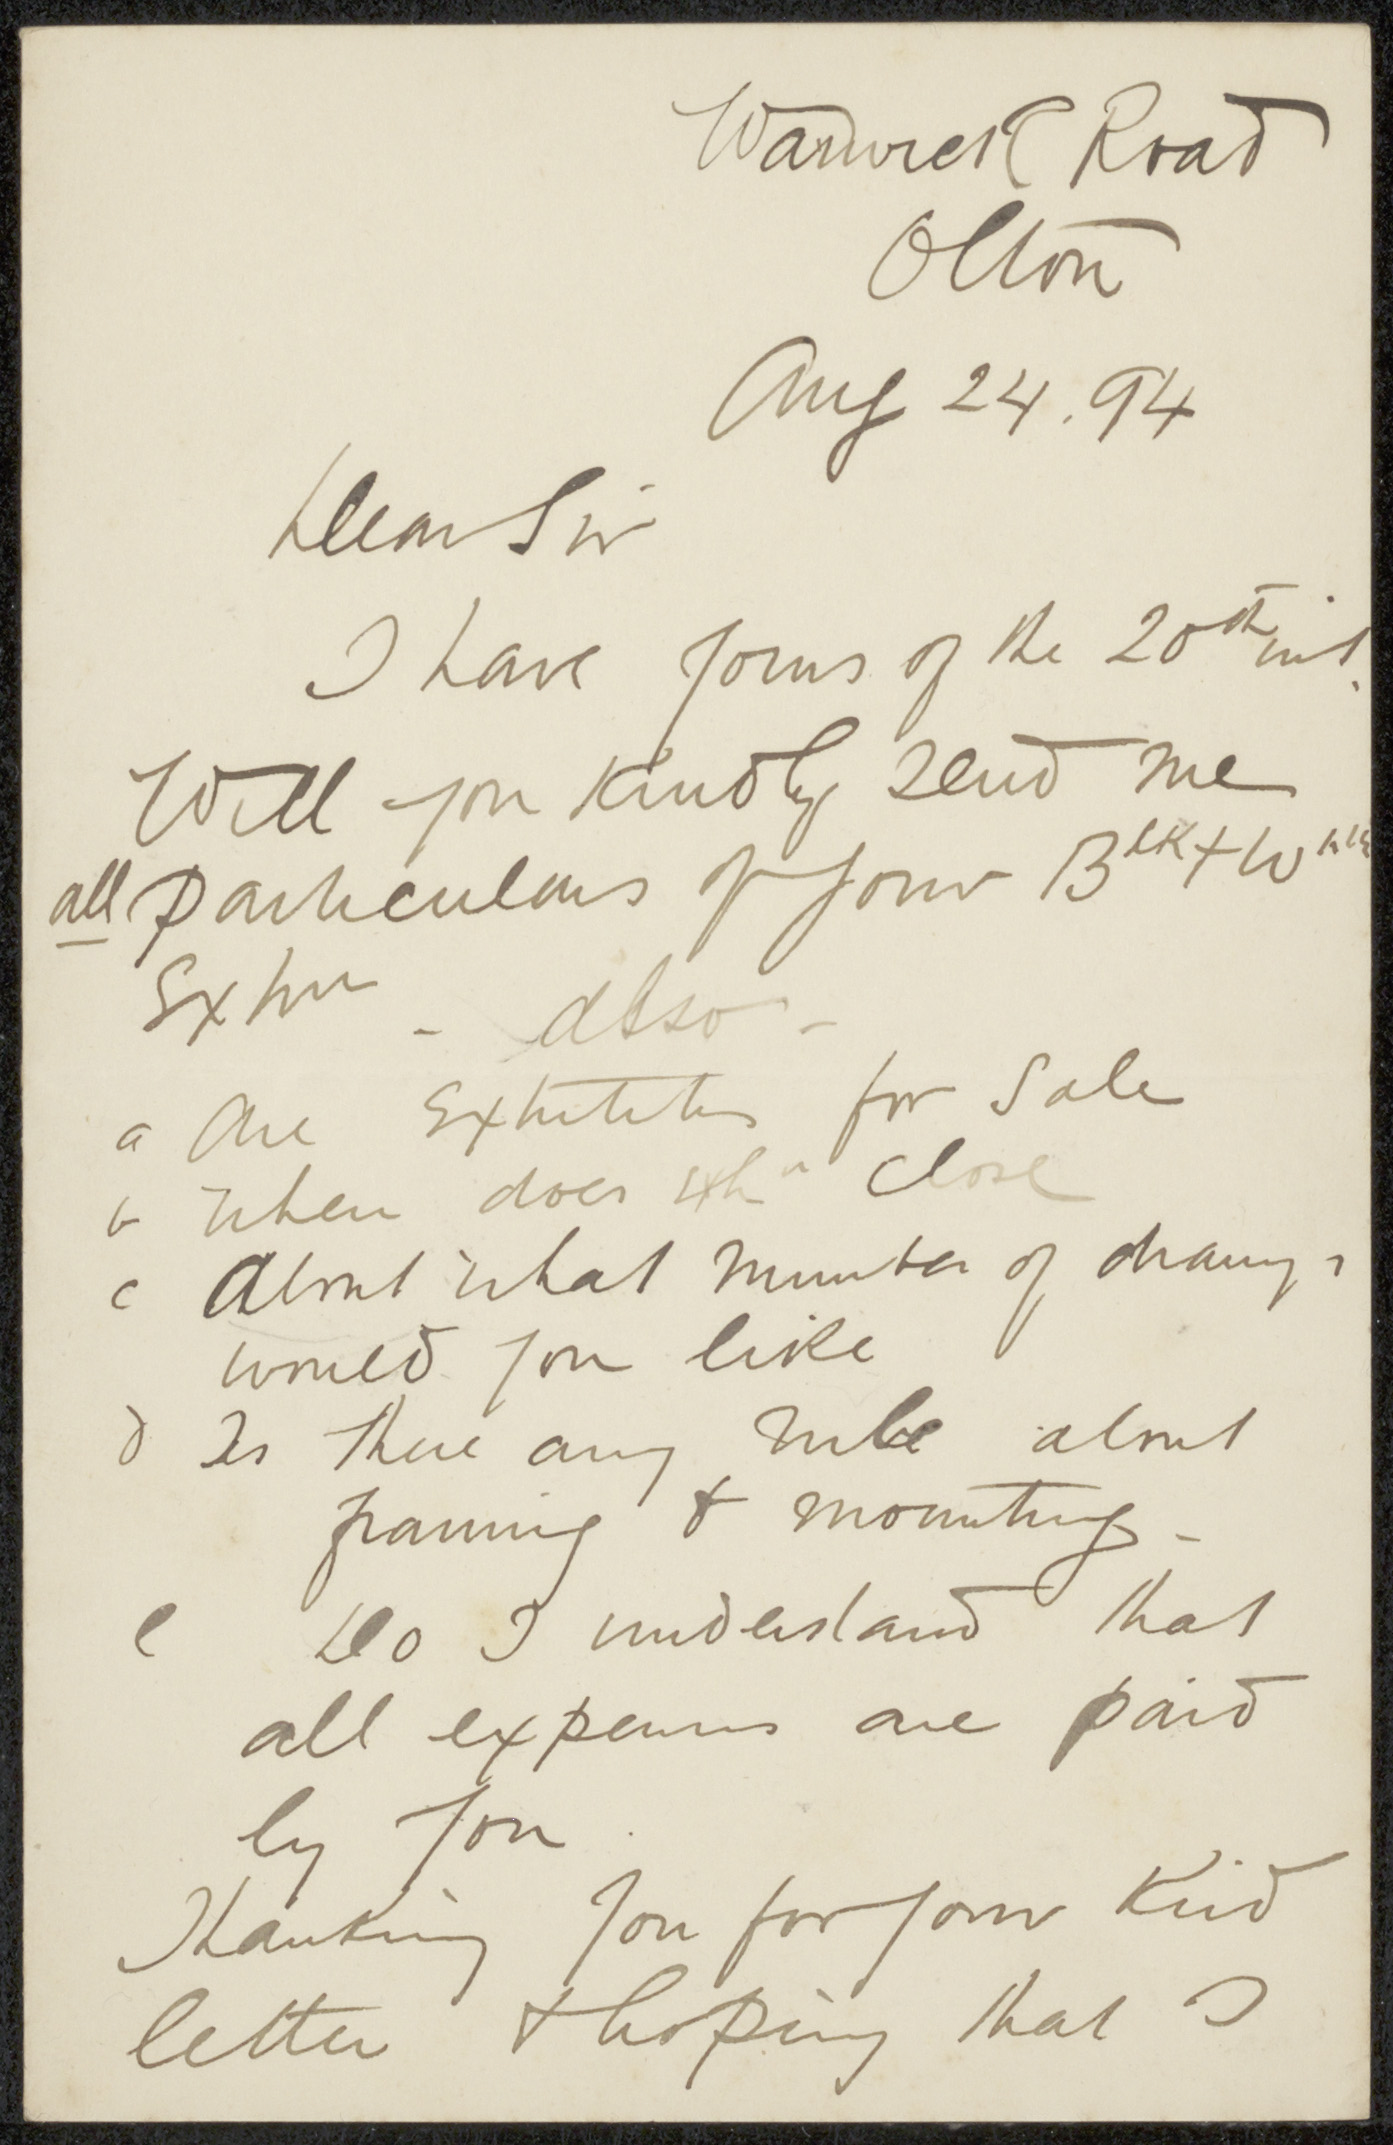 Warwick Road
Olton
Aug 24. 94
Dear Sir
I have yours of the 20th inst.
Will you kindly send me
all particulars of your Blk & White
Exhn - also -
a Are Exhibits for Sale
b When does Exhn close
c About what number of drawings
would you like
d Is there any rule about
framing & mounting -
e Do I understand that
all expenses are paid
by you
Thanking you for your kind
letter & hoping that I